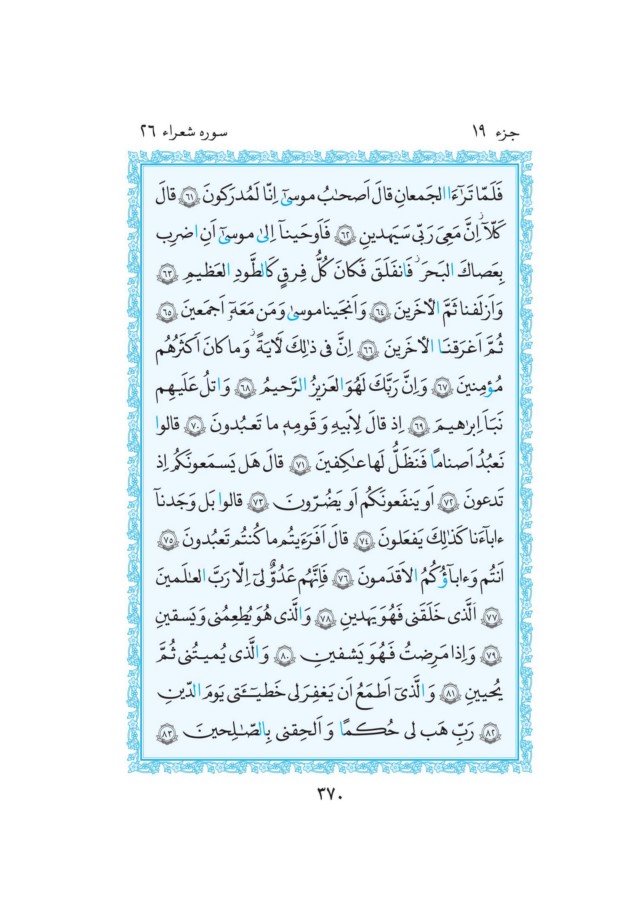 جزء ۱۹
سوره شعراء ۲۶
فَلَمّا تَرٰٓءَا الجَمعانِ قالَ اَصحٰبُ موسىٰٓ اِنّا لَمُدرَكونَ ﴿٦١﴾ قالَ
كَلّآ ۖ اِنَّ مَعِىَ رَبّى سَيَهدينِ ﴿٦٢﴾ فَاَوحَينآ اِلىٰ موسىٰٓ اَنِ اضرِب
بِعَصاكَ البَحرَ ۖ فَانفَلَقَ فَكانَ كُلُّ فِرقٍ كَالطَّودِ العَظيمِ ﴿٦٣﴾
وَ اَزلَفنا ثَمَّ الأخَرينَ ﴿٦٤﴾ وَ اَنجَينا موسىٰ وَ مَن مَعَهٗٓ اَجمَعينَ ﴿٦٥﴾
ثُمَّ اَغرَقنَا الأخَرينَ ﴿٦٦﴾ اِنَّ فى ذٰلِكَ لَأيَةً ۖ وَ ما كانَ اَكثَرُهُم
مُؤمِنينَ ﴿٦٧﴾ وَ اِنَّ رَبَّكَ لَهُوَ العَزيزُ الرَّحيمُ ﴿٦٨﴾ وَ اتلُ عَلَيهِم
نَبَاَ اِبرٰهيمَ ﴿٦٩﴾ اِذ قالَ لِاَبيهِ وَ قَومِهٖ ما تَعبُدونَ ﴿٧٠﴾ قالوا
نَعبُدُ اَصنامًا فَنَظَلُّ لَها عٰكِفينَ ﴿٧١﴾ قالَ هَل يَسمَعونَكُم اِذ
تَدعونَ ﴿٧٢﴾ اَو يَنفَعونَكُم اَو يَضُرّونَ ﴿٧٣﴾ قالوا بَل وَجَدنآ
ءابآءَنا كَذٰلِكَ يَفعَلونَ ﴿٧٤﴾ قالَ اَفَرَءَيتُم ما كُنتُم تَعبُدونَ ﴿٧٥﴾
اَنتُم وَ ءابآؤُكُمُ الاَقدَمونَ ﴿٧٦﴾ فَاِنَّهُم عَدُوٌّ لىٓ اِلّا رَبَّ العٰلَمينَ
﴿٧٧﴾ اَلَّذى خَلَقَنى فَهُوَ يَهدينِ ﴿٧٨﴾ وَ الَّذى هُوَ يُطعِمُنى وَ يَسقينِ
﴿٧٩﴾ وَ اِذا مَرِضتُ فَهُوَ يَشفينِ ﴿٨٠﴾ وَ الَّذى يُميتُنى ثُمَّ
يُحيينِ ﴿٨١﴾ وَ الَّذىٓ اَطمَعُ اَن يَغفِرَ لى خَطيٓـَٔتى يَومَ الدّينِ
﴿٨٢﴾ رَبِّ هَب لى حُكمًا وَ اَلحِقنى بِالصّٰلِحينَ ﴿٨٣﴾
۳۷۰